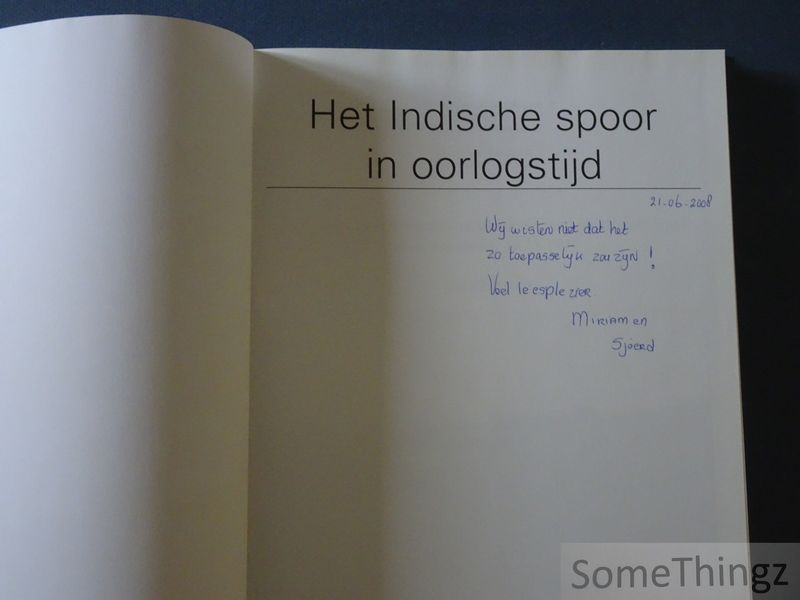 Het Indische spoor
in oorlogstijd
21-06-2008
Wij wisten niet dat het
zo toepasselijk zou zijn !
Veel leesplezier
Miriam en
Sjoerd
SomeThingz